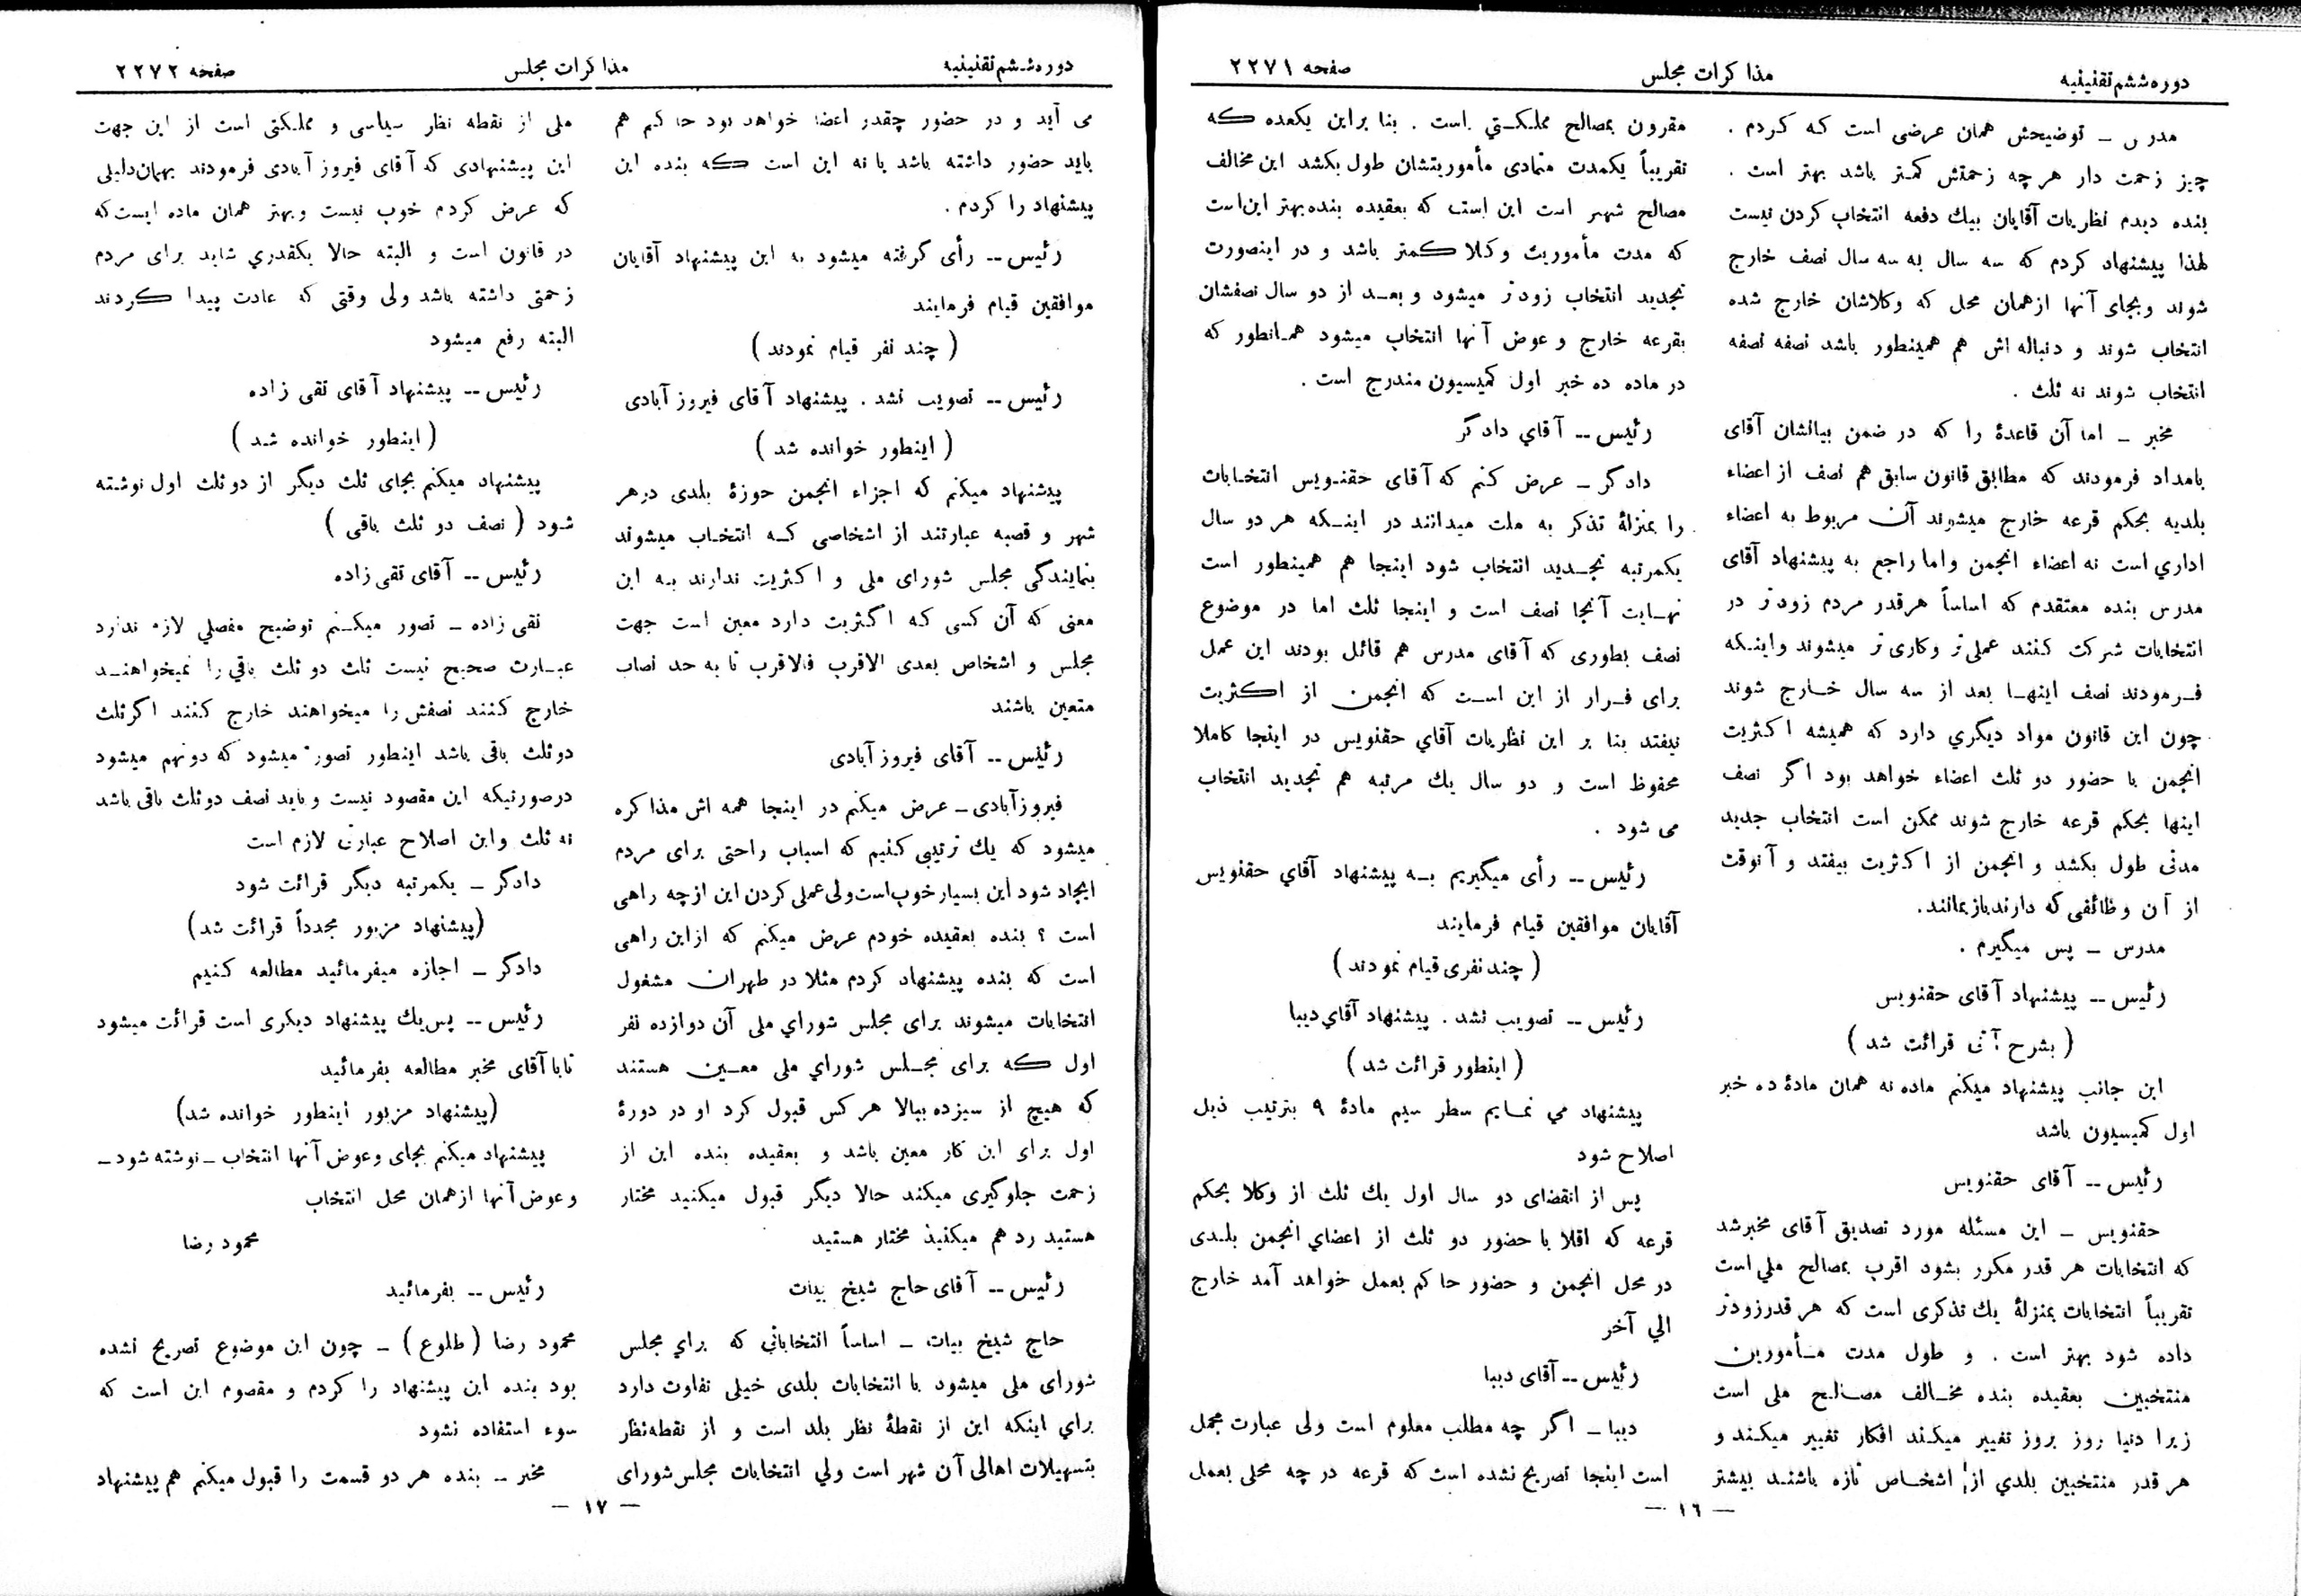 دوره ششم تقنینیه
مذاکرات مجلس
صفحه ۲۲۷۱
مدرس ـ توضیحش همان عرضی است که کردم .
چیز زحمت دار هر چه زحمتش کمتر باشد بهتر است .
بنده دیدم نظریات آقایان بیك دفعه انتخاب کردن نیست
لهذا پیشنهاد کردم که سه سال به سه سال نصف خارج
شوند و بجای آنها از همان محل که وکلاشان خارج شده
انتخاب شوند و دنباله اش هم همینطور باشد نصفه نصفه
انتخاب شوند نه ثلث .
مخبر ـ اما آن قاعدۀ را که در ضمن بیانشان آقای
بامداد فرمودند که مطابق قانون سابق هم نصف از اعضاء
بلدیه بحکم قرعه خارج میشوند آن مربوط به اعضاء
اداري است نه اعضاء انجمن و اما راجع به پیشنهاد آقای
مدرس بنده معتقدم که اساساً هر قدر مردم زودتر در
انتخابات شرکت کنند عملی تر و کاری تر میشوند و اینکه
فرمودند نصف اینها بعد از سه سال خارج شوند
چون این قانون مواد دیگري دارد که همیشه اکثریت
انجمن با حضور دو ثلث اعضاء خواهد بود اگر نصف
اینها بحکم قرعه خارج شوند ممکن است انتخاب جدید
مدتی طول بکشد و انجمن از اکثریت بیفتد و آنوقت
از آن وظائفی که دارند باز بمانند.
مدرس ـ پس میگیرم .
رئیس -- پیشنهاد آقای حقنویس
( بشرح آتی قرائت شد )
این جانب پیشنهاد میکنم ماده نه همان مادۀ ده خبر
اول کمیسیون باشد
رئیس -- آقای حقنویس
حقنویس ـ این مسئله مورد تصدیق آقای مخبر شد
که انتخابات هر قدر مکرر بشود اقرب بمصالح ملی است
تقریباً انتخابات بمنزلۀ یك تذکری است که هر قدر زودتر
داده شود بهتر است . و طول مدت مأمورین
منتخبین بعقیده بنده مخالف مصالح ملی است
زیرا دنیا روز بروز تغییر میکند افکار تغییر میکند و
هر قدر منتخبین بلدي از اشخاص تازه باشند بیشتر
مقرون بمصالح مملکتي است . بنا براین یکعده که
تقریباً یکمدت متمادی مأموریتشان طول بکشد این مخالف
مصالح شهر است این است که بعقیده بنده بهتر این است
که مدت مأموریت وکلا کمتر باشد و در اینصورت
تجدید انتخاب زودتر میشود و بعد از دو سال نصفشان
بقرعه خارج و عوض آنها انتخاب میشود همانطور که
در ماده ده خبر اول کمیسیون مندرج است .
رئیس -- آقاي دادگر
دادگر ـ عرض کنم که آقای حقنویس انتخابات
را بمنزلۀ تذکر به ملت میدانند در اینکه هر دو سال
یکمرتبه تجدید انتخاب شود اینجا هم همینطور است
نهایت آنجا نصف است و اینجا ثلث اما در موضوع
نصف بطوری که آقای مدرس هم قائل بودند این عمل
برای فرار از این است که انجمن از اکثریت
نیفتد بنا بر این نظریات آقاي حقنویس در اینجا کاملا
محفوظ است و دو سال یك مرتبه هم تجدید انتخاب
می شود .
رئیس -- رأی میگیریم به پیشنهاد آقاي حقنویس
آقایان موافقین قیام فرمایند
( چند نفری قیام نمودند )
رئیس -- تصویب نشد . پیشنهاد آقاي دیبا
( اینطور قرائت شد )
پیشنهاد می نمایم سطر سیم مادۀ ۹ بترتیب ذیل
اصلاح شود
پس از انقضای دو سال اول یك ثلث از وکلا بحکم
قرعه که اقلا با حضور دو ثلث از اعضاي انجمن بلدی
در محل انجمن و حضور حاکم بعمل خواهد آمد خارج
الی آخر
رئیس -- آقای دیبا
دیبا ـ اگر چه مطلب معلوم است ولی عبارت مجمل
است اینجا تصریح نشده است که قرعه در چه محلی بعمل
— ۱۶ —
دوره ششم تقنینیه
مذاکرات مجلس
صفحه ۲۲۷۲
می آید و در حضور چقدر اعضا خواهد بود حاکم هم
باید حضور داشته باشد یا نه این است که بنده این
پیشنهاد را کردم .
رئیس -- رأی گرفته میشود به این پیشنهاد آقایان
موافقین قیام فرمایند
( چند نفر قیام نمودند )
رئیس -- تصویب نشد . پیشنهاد آقای فیروز آبادی
( اینطور خوانده شد )
پیشنهاد میکنم که اجزاء انجمن حوزۀ بلدی در هر
شهر و قصبه عبارتند از اشخاصی که انتخاب میشوند
بنمایندگی مجلس شورای ملی و اکثریت ندارند به این
معنی که آن کسی که اکثریت دارد معین است جهت
مجلس و اشخاص بعدی الاقرب فالاقرب تا به حد نصاب
متعین باشند
رئیس -- آقای فیروز آبادی
فیروزآبادی ـ عرض میکنم در اینجا همه اش مذاکره
میشود که یك ترتیبی کنیم که اسباب راحتی برای مردم
ایجاد شود این بسیار خوب است ولی عملی کردن این از چه راهی
است ؟ بنده بعقیده خودم عرض میکنم که از این راهی
است که بنده پیشنهاد کردم مثلا در طهران مشغول
انتخابات میشوند برای مجلس شوراي ملی آن دوازده نفر
اول که برای مجلس شوراي ملی معین هستند
که هیچ از سیزده ببالا هر کس قبول کرد او در دورۀ
اول برای این کار معین باشد و بعقیده بنده این از
زحمت جلوگیری میکند حالا دیگر قبول میکنید مختار
هستید رد هم میکنید مختار هستید
رئیس -- آقای حاج شیخ بیات
حاج شیخ بیات ـ اساساً انتخاباتی که براي مجلس
شورای ملی میشود با انتخابات بلدی خیلی تفاوت دارد
براي اینکه این از نقطۀ نظر بلد است و از نقطه نظر
بتسهیلات اهالی آن شهر است ولي انتخابات مجلس شورای
ملی از نقطه نظر سیاسی و مملکتی است از این جهت
این پیشنهادی که آقای فیروز آبادی فرمودند بهمان دلیلی
که عرض کردم خوب نیست و بهتر همان ماده ایست که
در قانون است و البته حالا یکقدري شاید برای مردم
زحمتی داشته باشد ولی وقتی که عادت پیدا کردند
البته رفع میشود
رئیس -- پیشنهاد آقای تقی زاده
( اینطور خوانده شد )
پیشنهاد میکنم بجای ثلث دیگر از دو ثلث اول نوشته
شود ( نصف دو ثلث باقی )
رئیس -- آقای تقی زاده
تقی زاده ـ تصور میکنم توضیح مفصلي لازم ندارد
عبارت صحیح نیست ثلث دو ثلث باقی را نمیخواهند
خارج کنند نصفش را میخواهند خارج کنند اگر ثلث
دو ثلث باقی باشد اینطور تصور میشود که دو نهم میشود
درصورتیکه این مقصود نیست و باید نصف دو ثلث باقی باشد
نه ثلث و این اصلاح عبارتی لازم است
دادگر ـ یکمرتبه دیگر قرائت شود
(پیشنهاد مزبور مجدداً قرائت شد)
دادگر ـ اجازه میفرمائید مطالعه کنیم
رئیس -- پس یك پیشنهاد دیگری است قرائت میشود
تا با آقای مخبر مطالعه بفرمائید
(پیشنهاد مزبور اینطور خوانده شد)
پیشنهاد میکنم بجای و عوض آنها انتخاب ـ نوشته شود ـ
و عوض آنها از همان محل انتخاب
محمود رضا
رئیس -- بفرمائید
محمود رضا ( طلوع ) ـ چون این موضوع تصریح نشده
بود بنده این پیشنهاد را کردم و مقصوم این است که
سوء استفاده نشود
مخبر ـ بنده هر دو قسمت را قبول میکنم هم پیشنهاد
— ۱۷ —